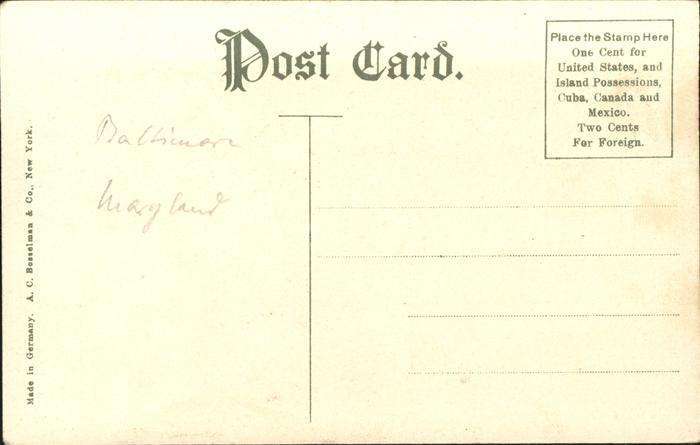 Post Card.
Place the Stamp Here
One Cent for
United States, and
Island Possessions,
Cuba, Canada and
Mexico.
Two Cents
For Foreign.
Baltimore
Maryland
Made in Germany. A. C. Bosselman & Co., New York.